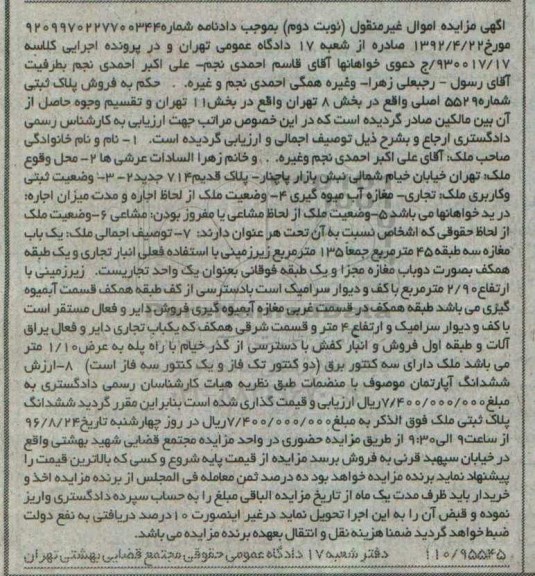 آگهی مزایده اموال غیرمنقول (نوبت دوم) بموجب دادنامه شماره۹۲۰۹۹۷۰۲۲۷۷۰۰۳۴۴
مورخ۱۳۹۲/۴/۲۲ صادره از شعبه ۱۷ دادگاه عمومی تهران و در پرونده اجرایی کلاسه
۹۳۰۰۱۷/۱۷/ج دعوی خواهانها آقای قاسم احمدی نجم- علی اکبر احمدی نجم بطرفیت
آقای رسول - رجبعلی زهرا- وغیره همگی احمدی نجم و غیره. . حکم به فروش پلاک ثبتی
شماره۵۵۲۹ اصلی واقع در بخش ۸ تهران واقع در بخش۱۱ تهران و تقسیم وجوه حاصل از
آن بین مالکین صادر گردیده است که در این خصوص مراتب جهت ارزیابی به کارشناس رسمی
دادگستری ارجاع و بشرح ذیل توصیف اجمالی و ارزیابی گردیده است. ۱- نام و نام خانوادگی
صاحب ملک: آقای علی اکبر احمدی نجم وغیره. . وخانم زهرا السادات عرشی ها ۲- محل وقوع
ملک: تهران خیابان خیام شمالی نبش بازار پاچنار- پلاک قدیم۷۱۴ جدید۲- ۳- وضعیت ثبتی
وکاربری ملک: تجاری- مغازه آب میوه گیری ۴- وضعیت ملک از لحاظ اجاره و مدت میزان اجاره:
در ید خواهانها می باشد ۵-وضعیت ملک از لحاظ مشاعی یا مفروز بودن: مشاعی ۶-وضعیت ملک
از لحاظ حقوقی که اشخاص نسبت به آن تحت هر عنوان دارند: ۷- توصیف اجمالی ملک: یک باب
مغازه سه طبقه ۴۵ مترمربع جمعا ۱۳۵ مترمربع زیرزمینی با استفاده فعلی انبار تجاری و یک طبقه
همکف بصورت دوباب مغازه مجزا و یک طبقه فوقانی بعنوان یک واحد تجاریست. زیرزمینی با
ارتفاع ۲/۹۰ مترمربع با کف و دیوار سرامیک است بادسترسی از کف طبقه همکف قسمت آبمیوه
گیری می باشد طبقه همکف در قسمت غربی مغازه آبمیوه گیری فروش دایر و فعال مستقر است
با کف و دیوار سرامیک و ارتفاع ۴ متر و قسمت شرقی همکف که یکباب تجاری دایر و فعال یراق
آلات و طبقه اول فروش و انبار کفش با دسترسی از گذر خیام با راه پله به عرض۱/۱۰ متر
می باشد ملک دارای سه کنتور برق (دو کنتور تک فاز و یک کنتور سه فاز است) ۸-ارزش
ششدانگ آپارتمان موصوف با منضمات طبق نظریه هیات کارشناسان رسمی دادگستری به
مبلغ۷/۴۰۰/۰۰۰/۰۰۰ریال ارزیابی و قیمت گذاری شده است بنابراین مقرر گردید ششدانگ
پلاک ثبتی ملک فوق الذکر به مبلغ۷/۴۰۰/۰۰۰/۰۰۰ریال در روز چهارشنبه تاریخ۹۶/۸/۲۴
از ساعت۹ الی۹:۳۰ از طریق مزایده حضوری در واحد مزایده مجتمع قضایی شهید بهشتی واقع
در خیابان سپهبد قرنی به فروش برسد مزایده از قیمت پایه شروع و کسی که بالاترین قیمت را
پیشنهاد نماید برنده مزایده خواهد بود ده درصد ثمن معامله فی المجلس از برنده مزایده اخذ و
خریدار باید ظرف مدت یک ماه از تاریخ مزایده الباقی مبلغ را به حساب سپرده دادگستری واریز
نموده و قبض آن را به این اجرا تحویل نماید درغیر اینصورت ۱۰درصد دریافتی به نفع دولت
ضبط خواهد گردید ضمنا هزینه نقل و انتقال بعهده برنده مزایده می باشد.
۱۱۰/۹۵۵۴۵ دفتر شعبه ۱۷ دادگاه عمومی حقوقی مجتمع قضایی بهشتی تهران